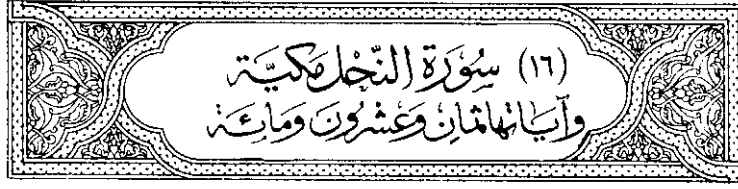 (١٦) سُورَة النَّحل مَكيَّة
وَآيَاتهَا ثمَانٍ وَعِشْرُونَ وَمائِة